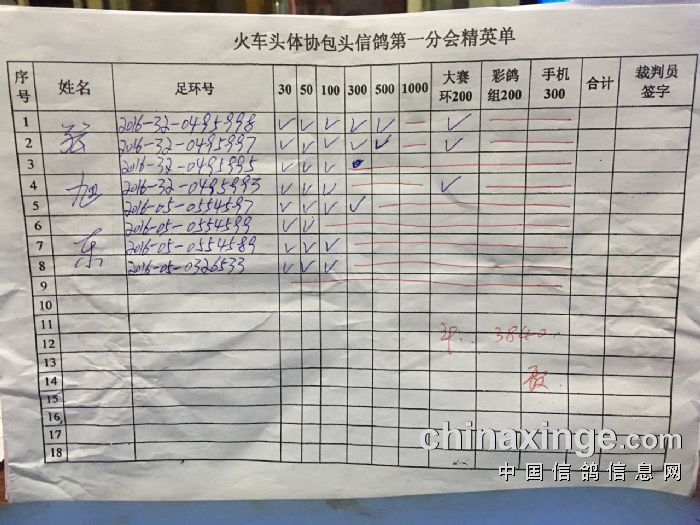 火车头体协包头信鸽第一分会精英单
序号 姓名 足环号 30 50 100 300 500 1000 大赛环200 彩鸽组200 手机300 合计 裁判员签字
1 2016-32-0495998 ✓ ✓ ✓ ✓ ✓ — ✓ —
2 2016-32-0495997 ✓ ✓ ✓ ✓ ✓ — ✓ —
3 2016-32-0495995 ✓ ✓ ✓ —
4 旭 2016-32-0495993 ✓ ✓ ✓ — ✓ —
5 2016-05-0554597 ✓ ✓ ✓ ✓ —
6 2016-05-0554599 ✓ ✓ —
7 东 2016-05-0554589 ✓ ✓ ✓ —
8 2016-05-0326533 ✓ ✓ ✓ —
9 —
10
11
12 3840.
13
14
15
16
17
18
chinaxinge.com
中国信鸽信息网